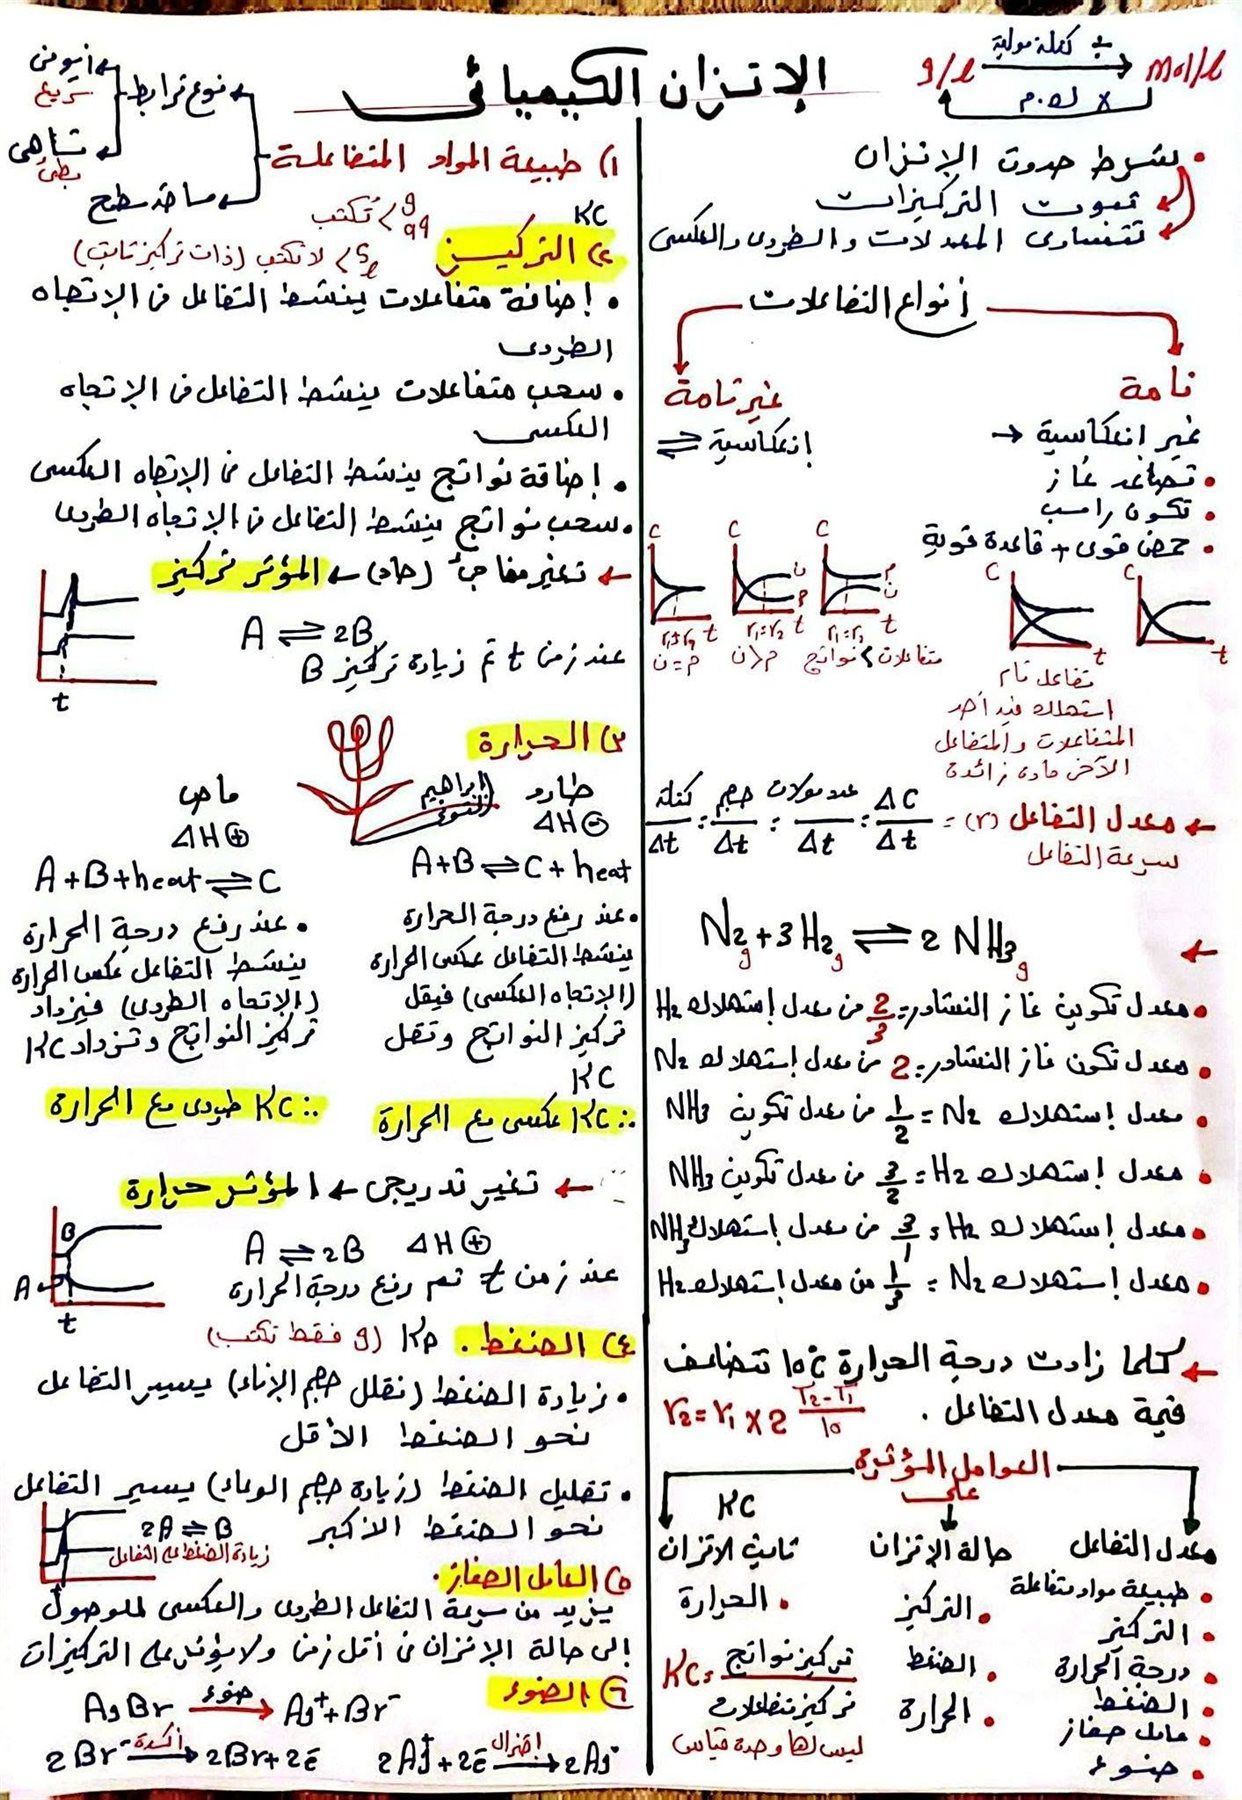 الإتزان الكيميائى
g/l
÷ كتلة مولية
x ك.م
mol/l
• شرط حدوث الإتزان
ثبوت التركيزات
تتساوى المعدلات والطردى والعكسى
أنواع التفاعلات
تامة
غير إنعكاسية →
• تصاعد غاز
• تكون راسب
• حمض قوى + قاعدة قوية
غير تامة
إنعكاسية ⇌
C
t
C
t
C
r₁=r₂ t
متفاعلات > نواتج
C
r₁=r₂ t
ن > م
C
r₁=r₂ t
م = ن
تفاعل تام
استهلك فيه أحد
المتفاعلات والمتفاعل
الآخر مادة زائدة
← معدل التفاعل (r) = ΔC/Δt = عدد مولات/Δt = حجم/Δt = كتلة/Δt
سرعة التفاعل
N₂g + 3H₂g ⇌ 2NH₃g
• معدل تكوين غاز النشادر = 2/3 من معدل إستهلاك H₂
• معدل تكون غاز النشادر = 2 من معدل إستهلاك N₂
• معدل إستهلاك N₂ = 1/2 من معدل تكوين NH₃
• معدل إستهلاك H₂ = 3/2 من معدل تكوين NH₃
• معدل إستهلاك H₂ = 3/1 من معدل إستهلاك NH₃
• معدل إستهلاك N₂ = 1/3 من معدل إستهلاك H₂
← كلما زادت درجة الحرارة 10°C تتضاعف
قيمة معدل التفاعل .
r₂ = r₁ x 2 T₂-T₁/10
العوامل المؤثرة
على
معدل التفاعل
• طبيعة مواد متفاعلة
• التركيز
• درجة الحرارة
• الضغط
• عامل حفاز
• ضوء
حالة الإتزان
• التركيز
• الضغط
• الحرارة
KC
ثابت الاتزان
• الحرارة
KC = تركيز نواتج / تركيز متفاعلات
ليس لها وحدة قياس
١) طبيعة المواد المتفاعلة
نوع ترابط
أيونى
سريع
تساهمى
بطئ
مساحة سطح
٢) التركيز
KC
g
aq
> تكتب
S
l
> لا تكتب (ذات تركيز ثابت)
• إضافة متفاعلات ينشط التفاعل فى الإتجاه
الطردى
• سحب متفاعلات ينشط التفاعل فى الإتجاه
العكسى
• إضافة نواتج ينشط التفاعل فى الإتجاه العكسى
• سحب نواتج ينشط التفاعل فى الإتجاه الطردى
← تغير مفاجئ (حاد) ← المؤثر تركيز
A ⇌ 2B
عند زمن t تم زيادة تركيز B
t
٣) الحرارة
إبراهيم
طارد
ΔH ⊖
A+B ⇌ C + heat
• عند رفع درجة الحرارة
ينشط التفاعل عكس الحرارة
(الإتجاه العكسى) فيقل
تركيز النواتج وتقل
KC
∴ KC عكسى مع الحرارة
ماص
ΔH ⊕
A+B+heat ⇌ C
• عند رفع درجة الحرارة
ينشط التفاعل عكس الحرارة
(الإتجاه الطردى) فيزداد
تركيز النواتج وتزداد KC
∴ KC طردى مع الحرارة
← تغير تدريجى ← المؤثر حرارة
A ⇌ 2B ΔH ⊕
عند زمن t تم رفع درجة الحرارة
B
A
t
٤) الضغط . KP (g فقط تكتب)
• زيادة الضغط (نقلل حجم الإناء) يسير التفاعل
نحو الضغط الأقل
• تقليل الضغط (زيادة حجم الوعاء) يسير التفاعل
نحو الضغط الأكبر
2A ⇌ B
زيادة الضغط على التفاعل
٥) العامل الحفاز.
يزيد من سرعة التفاعل الطردى والعكسى للوصول
إلى حالة الإتزان فى أقل زمن ولا يؤثر على التركيزات
٦) الضوء
AgBr ضوء→ Ag⁺ + Br⁻
2Ag⁺ + 2e⁻ إختزال→ 2Ag
2Br⁻ أكسدة→ 2Br + 2e⁻